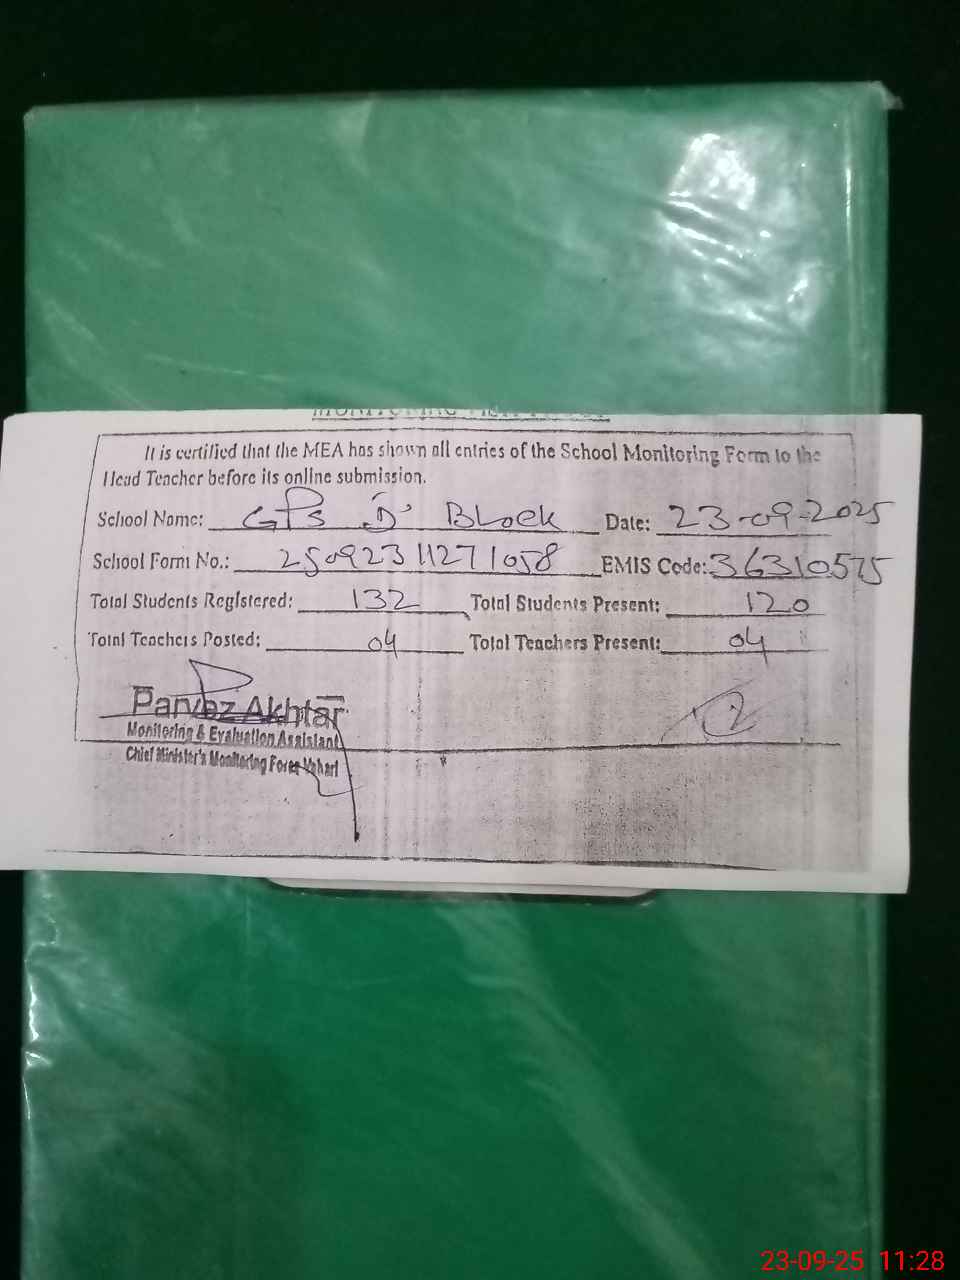 It is certified that the MEA has shown all entries of the School Monitoring Form to the
Head Teacher before its online submission.
School Name: GPS 'D' Block Date: 23-09-2025
School Form No.: 25092311271058 EMIS Code: 36310575
Total Students Registered: 132 Total Students Present: 120
Total Teachers Posted: 04 Total Teachers Present: 04
Parvez Akhtar
Monitoring & Evaluation Assistant
Chief Minister's Monitoring Force Vehari
23-09-25 11:28